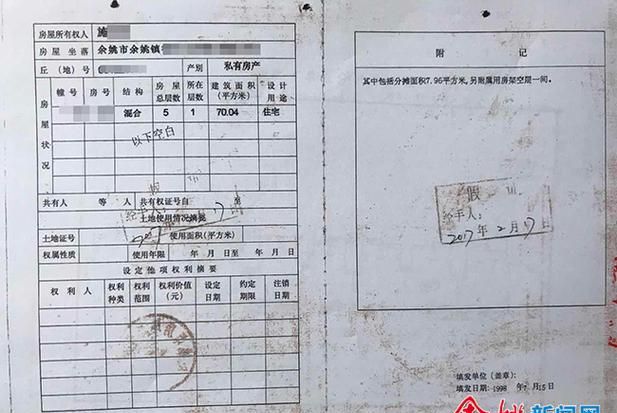 房屋所有权人 施
房屋坐落 余姚市余姚镇
丘(地)号 产别 私有房产
幢号 房号 结构 房屋总层数 所在层数 建筑面积(平方米) 设计用途
房屋状况
混合 5 1 70.04 住宅
以下空白
共有人 等 人 共有权证号自 至
土地使用情况摘要
土地证号 使用面积(平方米)
权属性质 使用年限 年 月 日至 年 月 日
设定他项权利摘要
权利人 权利种类 权利范围 权利价值(元) 设定日期 约定期限 注销日期
假
经手人:
2017 17
附 记
其中包括分摊面积7.96平方米,另附属用房架空层一间。
假
经手人:
2017年2月17日
填发单位(盖章):
填发日期:1998年7月15日
新闻网